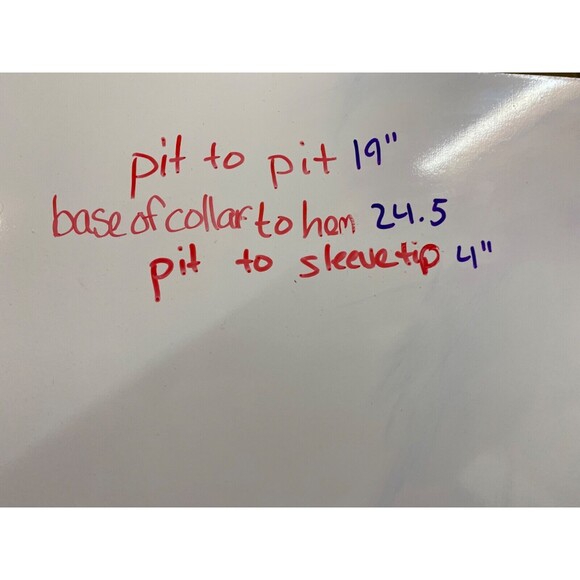 pit to pit 19"
base of collar to hem 24.5
pit to sleeve tip 4"